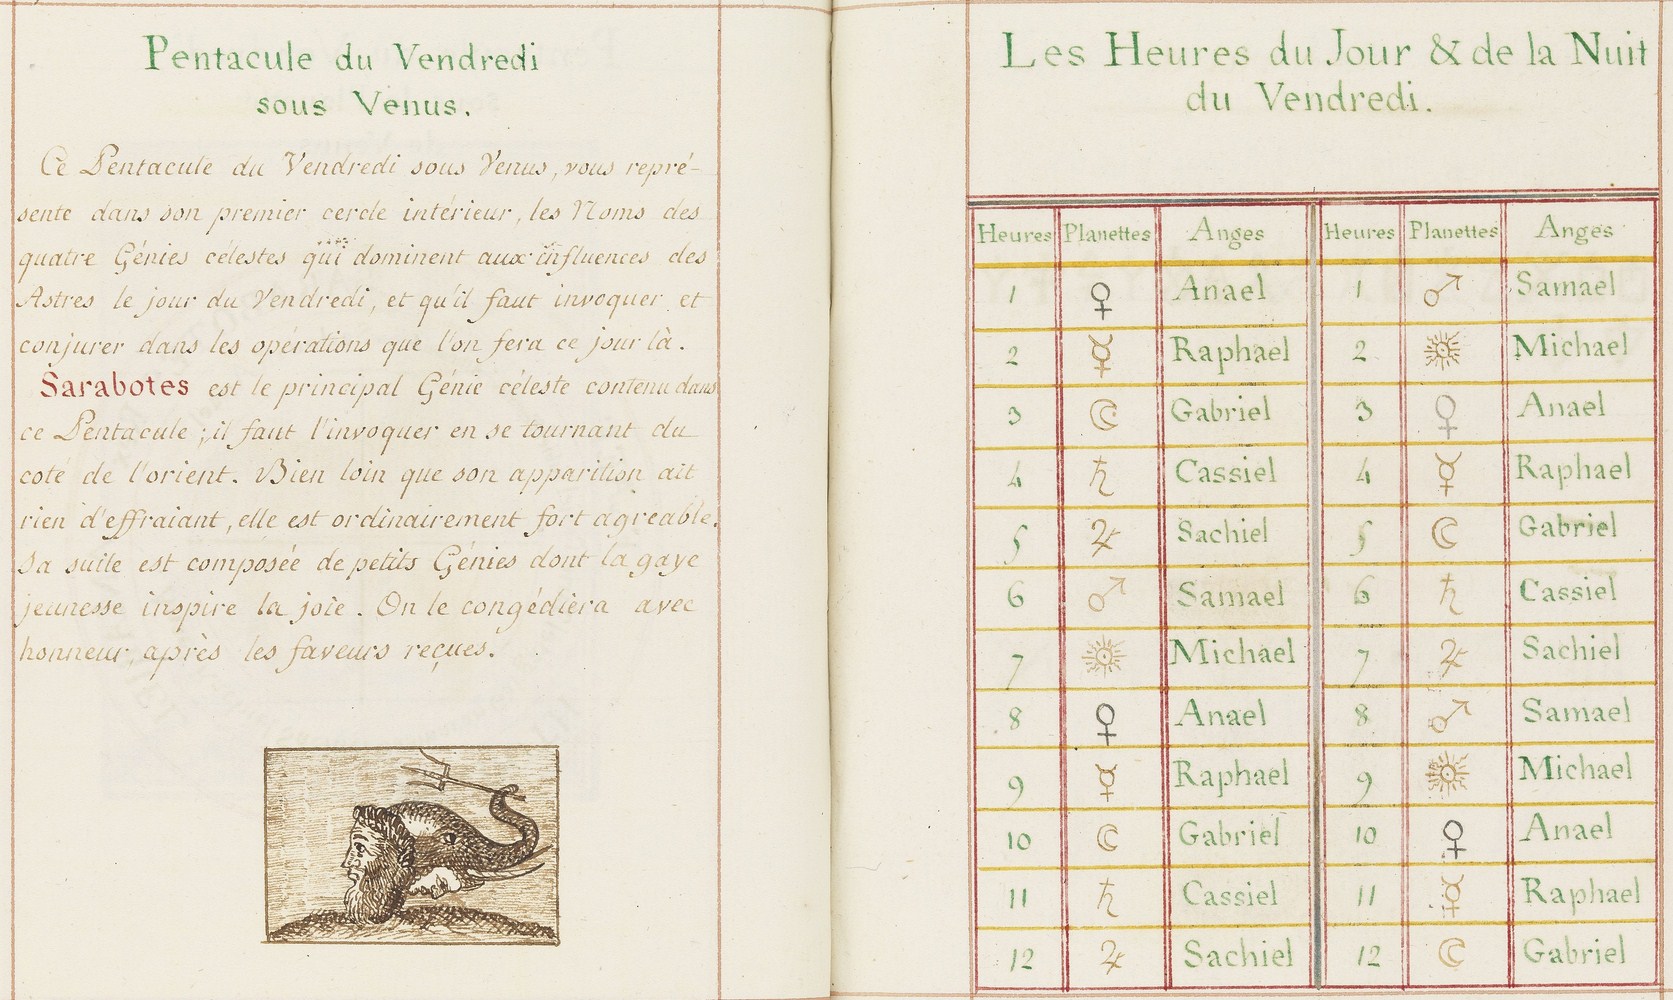 Pentacule du Vendredi
sous Venus.
Ce Pentacule du Vendredi sous Venus, vous repré-
sente dans son premier cercle intérieur, les Noms des
quatre Génies célestes qui dominent aux influences des
Astres le jour du Vendredi, et qu'il faut invoquer et
conjurer dans les opérations que l'on fera ce jour là.
Sarabotes est le principal Génie céleste contenu dans
ce Pentacule ; il faut l'invoquer en se tournant du
coté de l'orient. Bien loin que son apparition ait
rien d'effraiant, elle est ordinairement fort agreable.
Sa suite est composée de petits Génies dont la gaye
jeunesse inspire la joïe. On le congédièra avec
honneur, après les faveurs reçues.
Les Heures du Jour & de la Nuit
du Vendredi.
Heures Planettes Anges Heures Planettes Anges
1 ♀ Anael 1 ♂ Samael
2 ☿ Raphael 2 ☉ Michael
3 ☾ Gabriel 3 ♀ Anael
4 ♄ Cassiel 4 ☿ Raphael
5 ♃ Sachiel 5 ☾ Gabriel
6 ♂ Samael 6 ♄ Cassiel
7 ☉ Michael 7 ♃ Sachiel
8 ♀ Anael 8 ♂ Samael
9 ☿ Raphael 9 ☉ Michael
10 ☾ Gabriel 10 ♀ Anael
11 ♄ Cassiel 11 ☿ Raphael
12 ♃ Sachiel 12 ☾ Gabriel